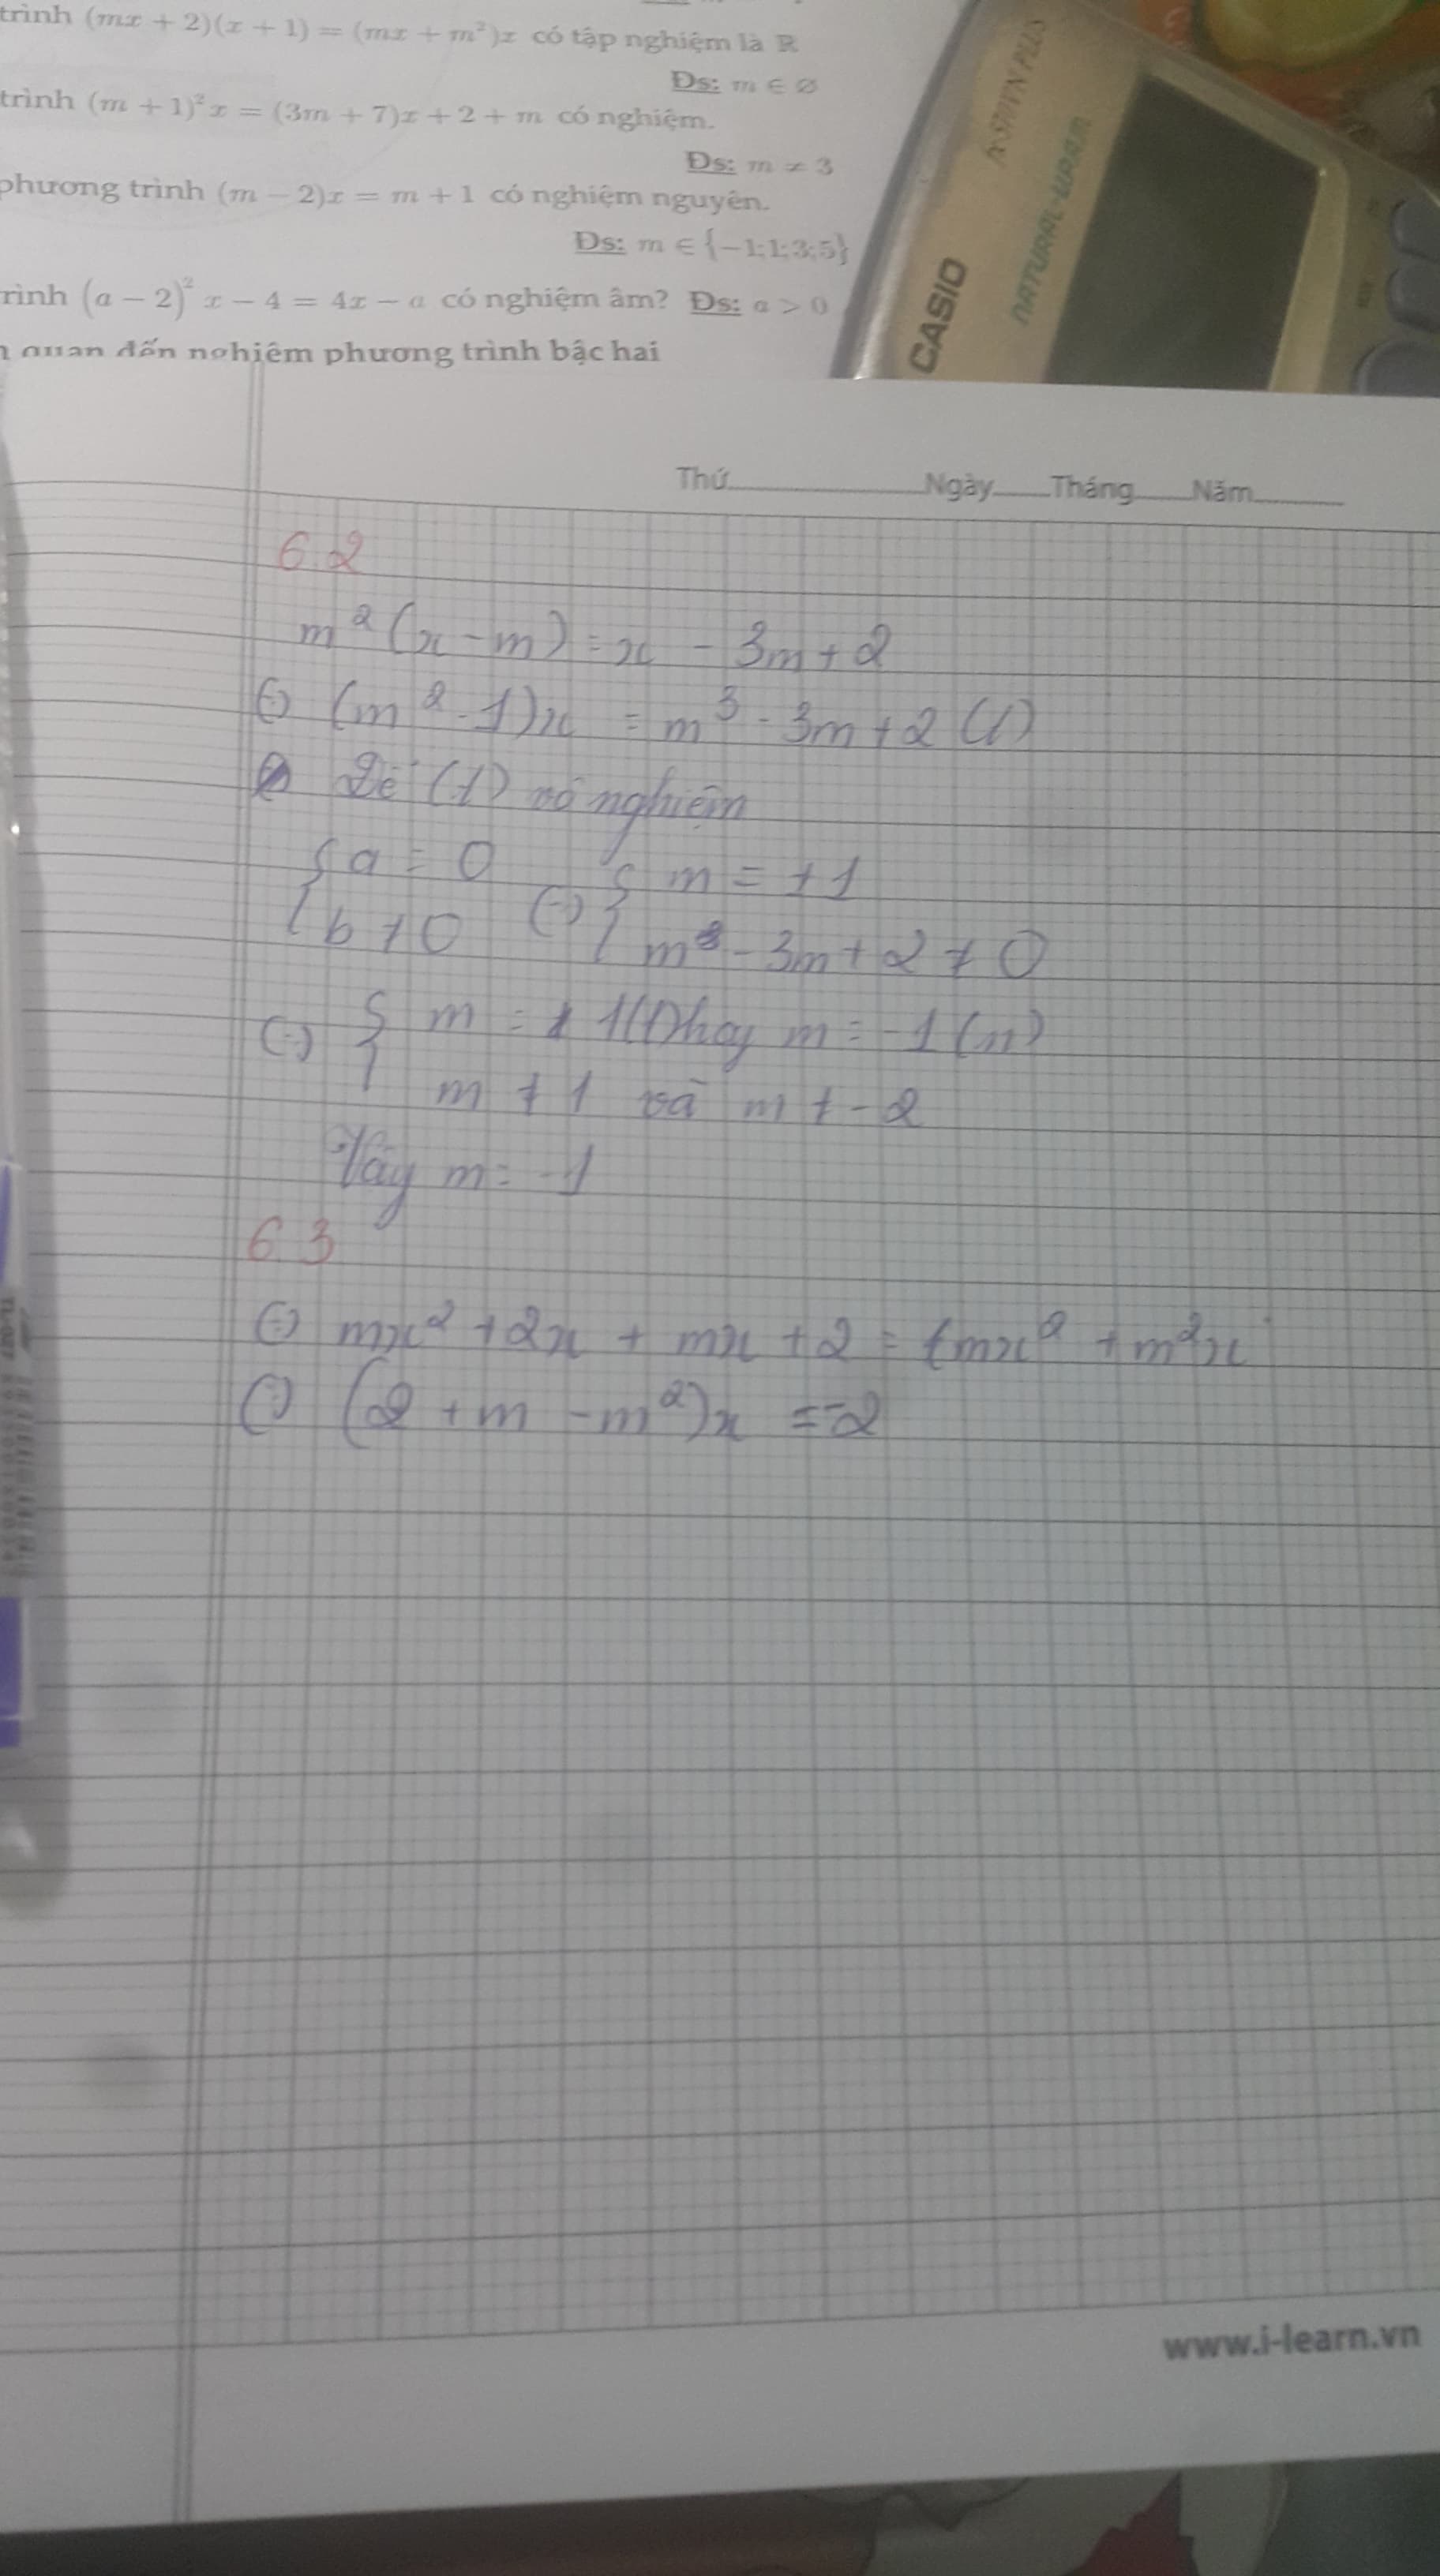 trình (mx + 2)(x + 1) = (mx + m²)x có tập nghiệm là R
Đs: m ∈ ∅
trình (m + 1)²x = (3m + 7)x + 2 + m có nghiệm.
Đs: m ≠ 3
phương trình (m − 2)x = m + 1 có nghiệm nguyên.
Đs: m ∈ {−1;1;3;5}
rình (a − 2)² x − 4 = 4x − a có nghiệm âm? Đs: a > 0
quan đến nghiệm phương trình bậc hai
CASIO
NATURAL-V.P.A.M.
PLUS
Thứ Ngày Tháng Năm
6.2
m²(x − m) = x − 3m + 2
⇔ (m² − 1)x = m³ − 3m + 2 (1)
Để (1) vô nghiệm
{ a = 0 ⇔ { m = ±1
{ b ≠ 0 { m³ − 3m + 2 ≠ 0
⇔ { m = 1 (l) hay m = −1 (n)
{ m ≠ 1 và m ≠ −2
Vậy m = −1
6.3
⇔ mx² + 2x + mx + 2 = mx² + m²x
⇔ (2 + m − m²)x = −2
www.i-learn.vn